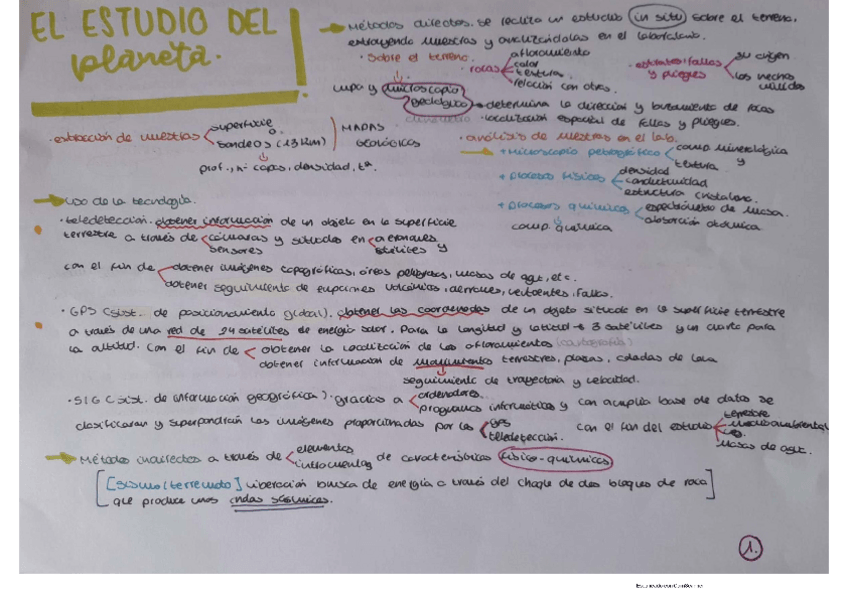 EL ESTUDIO DEL planeta.
Métodos directos. Se realiza un estudio in situ sobre el terreno,
extrayendo muestras y analizándolas en el laboratorio.
· Sobre el terreno.
· rocas
afloramiento
color
textura
relación con otras.
· estratos, fallas y pliegues
su origen
lupa y microscopio geológico
determina la dirección y buzamiento de rocas
· localización espacial de fallas y pliegues.
· extracción de muestras
superficie
sondeos (13 km)
MAPAS GEOLÓGICOS
prof., nº capas, densidad, tª
· análisis de muestras en el lab.
+ microscopio petrográfico
comp. mineralógica y textura
+ procesos físicos
densidad
conductividad
estructura cristalina.
+ procesos químicos
espectrómetro de masa.
absorción atómica
comp. química
Uso de la tecnología.
· teledetección. obtener información de un objeto en la superficie
terrestre a través de
cámaras y
sensores
situados en
aeronaves y
satélites
con el fin de
obtener imágenes topográficas, áreas peligrosas, masas de agua, etc.
obtener seguimiento de erupciones volcánicas, derrames, vertientes, fallas.
· GPS (sist. de posicionamiento global). obtener las coordenadas de un objeto situado en la superficie terrestre
a través de una red de 24 satélites de energía solar. Para la longitud y latitud → 3 satélites y un cuarto para
la altitud. Con el fin de
obtener la localización de los afloramientos (cartografía)
obtener información de movimientos terrestres, placas, coladas de lava
seguimiento de trayectoria y velocidad.
· SIG (sist. de información geográfica). gracias a
ordenadores
programas informáticos
y con amplia base de datos se
clasificaran y superpondrán las imágenes proporcionadas por los
GPS
teledetección.
con el fin del estudio
terrestre
medioambiental
masas de agua.
Métodos indirectos a través de
elementos
instrumentos
de características físico-químicas
[Sismo/terremoto] liberación brusca de energía a través del choque de dos bloques de roca
que produce unas ondas sísmicas.
1.